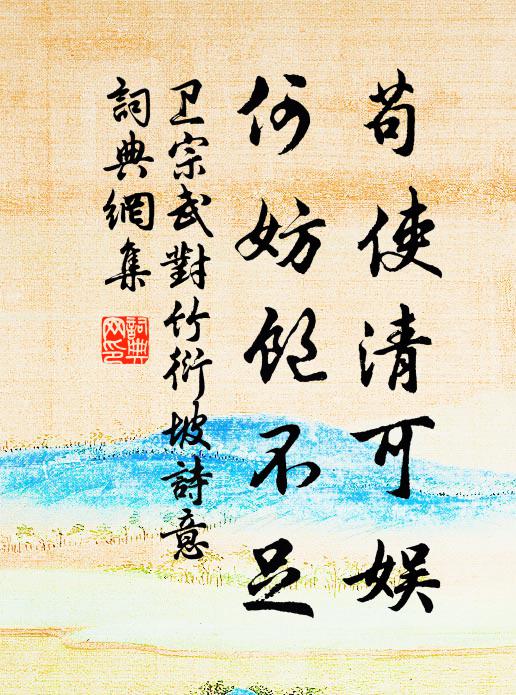 苟使清可娱
何妨飽不足
卫宗武對竹衍坡詩意
詞典網集
詞典網印